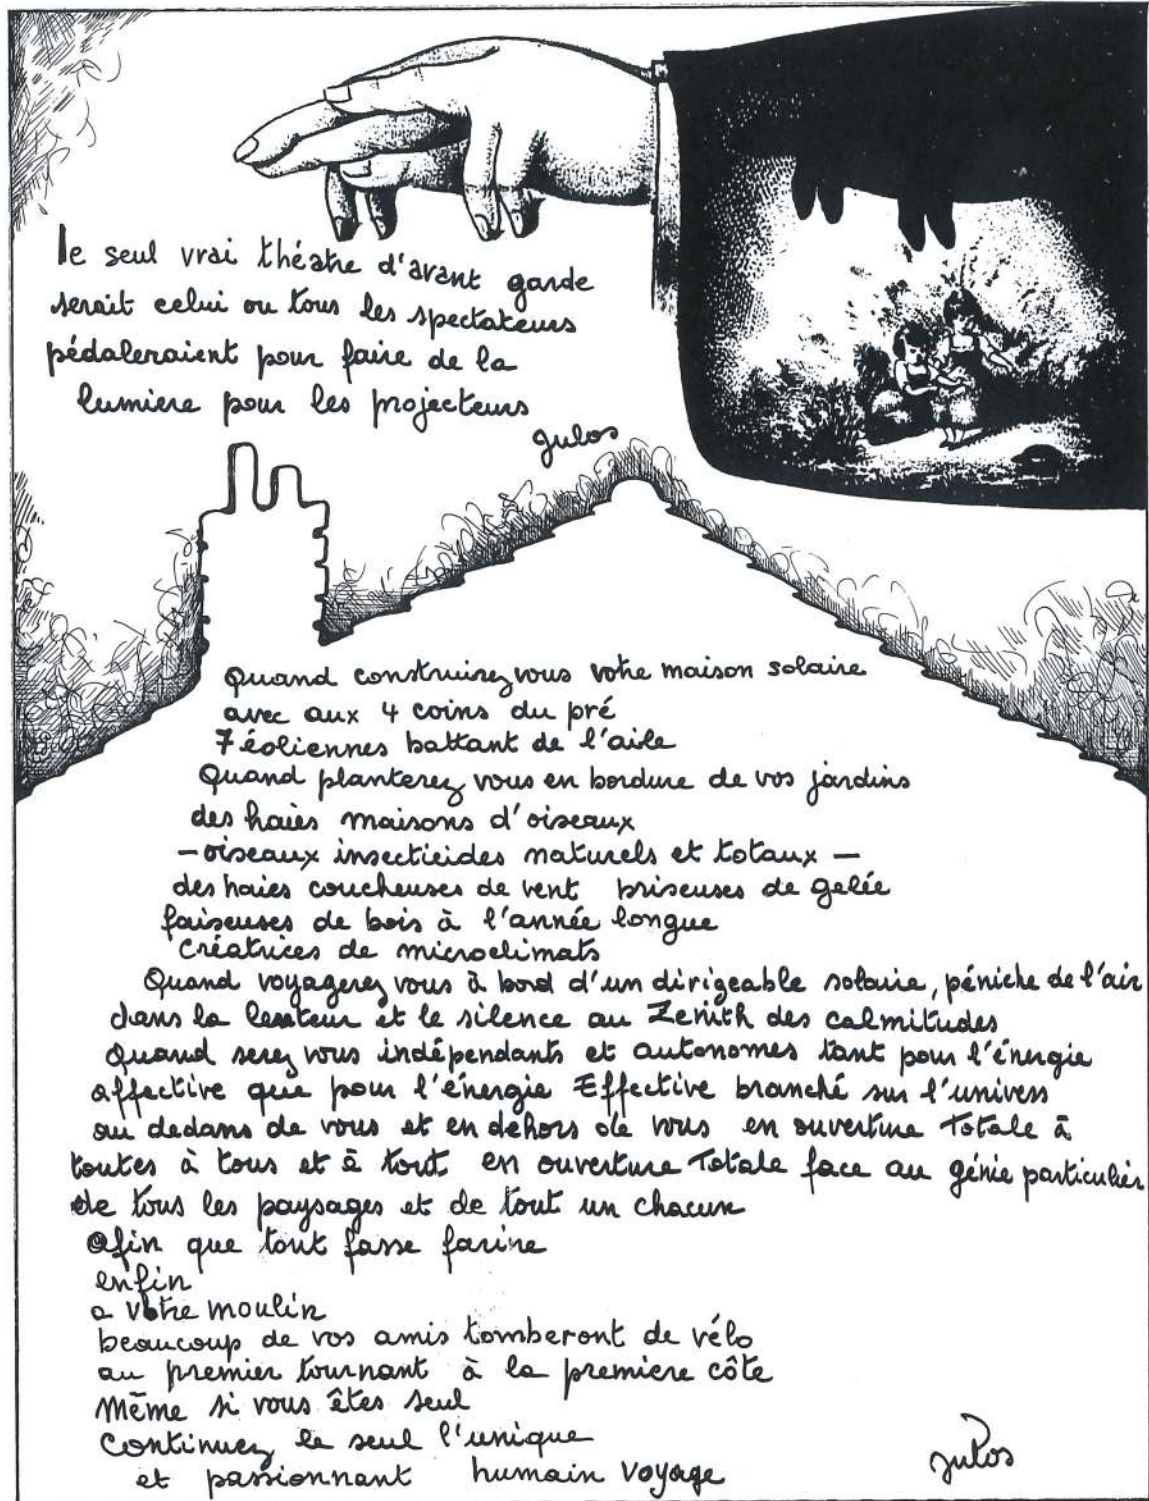 le seul vrai théatre d'avant garde
serait celui ou tous les spectateurs
pédaleraient pour faire de la
lumiere pour les projecteurs
Julos
Quand construirez vous votre maison solaire
avec aux 4 coins du pré
7 éoliennes battant de l'aile
Quand planterez vous en bordure de vos jardins
des haies maisons d'oiseaux
- oiseaux insecticides naturels et totaux -
des haies coucheuses de vent briseuses de gelée
faiseuses de bois à l'année longue
créatrices de microclimats
Quand voyagerez vous à bord d'un dirigeable solaire, péniche de l'air
dans la lenteur et le silence au Zenith des calmitudes
Quand serez vous indépendants et autonomes tant pour l'énergie
affective que pour l'énergie Effective branché sur l'univers
au dedans de vous et en dehors de vous en ouverture Totale à
toutes à tous et à tout en ouverture Totale face au génie particulier
de tous les paysages et de tout un chacun
afin que tout fasse farine
enfin
a votre moulin
beaucoup de vos amis tomberont de vélo
au premier tournant à la premiere côte
Même si vous êtes seul
Continuez le seul l'unique
et passionnant humain voyage
Julos